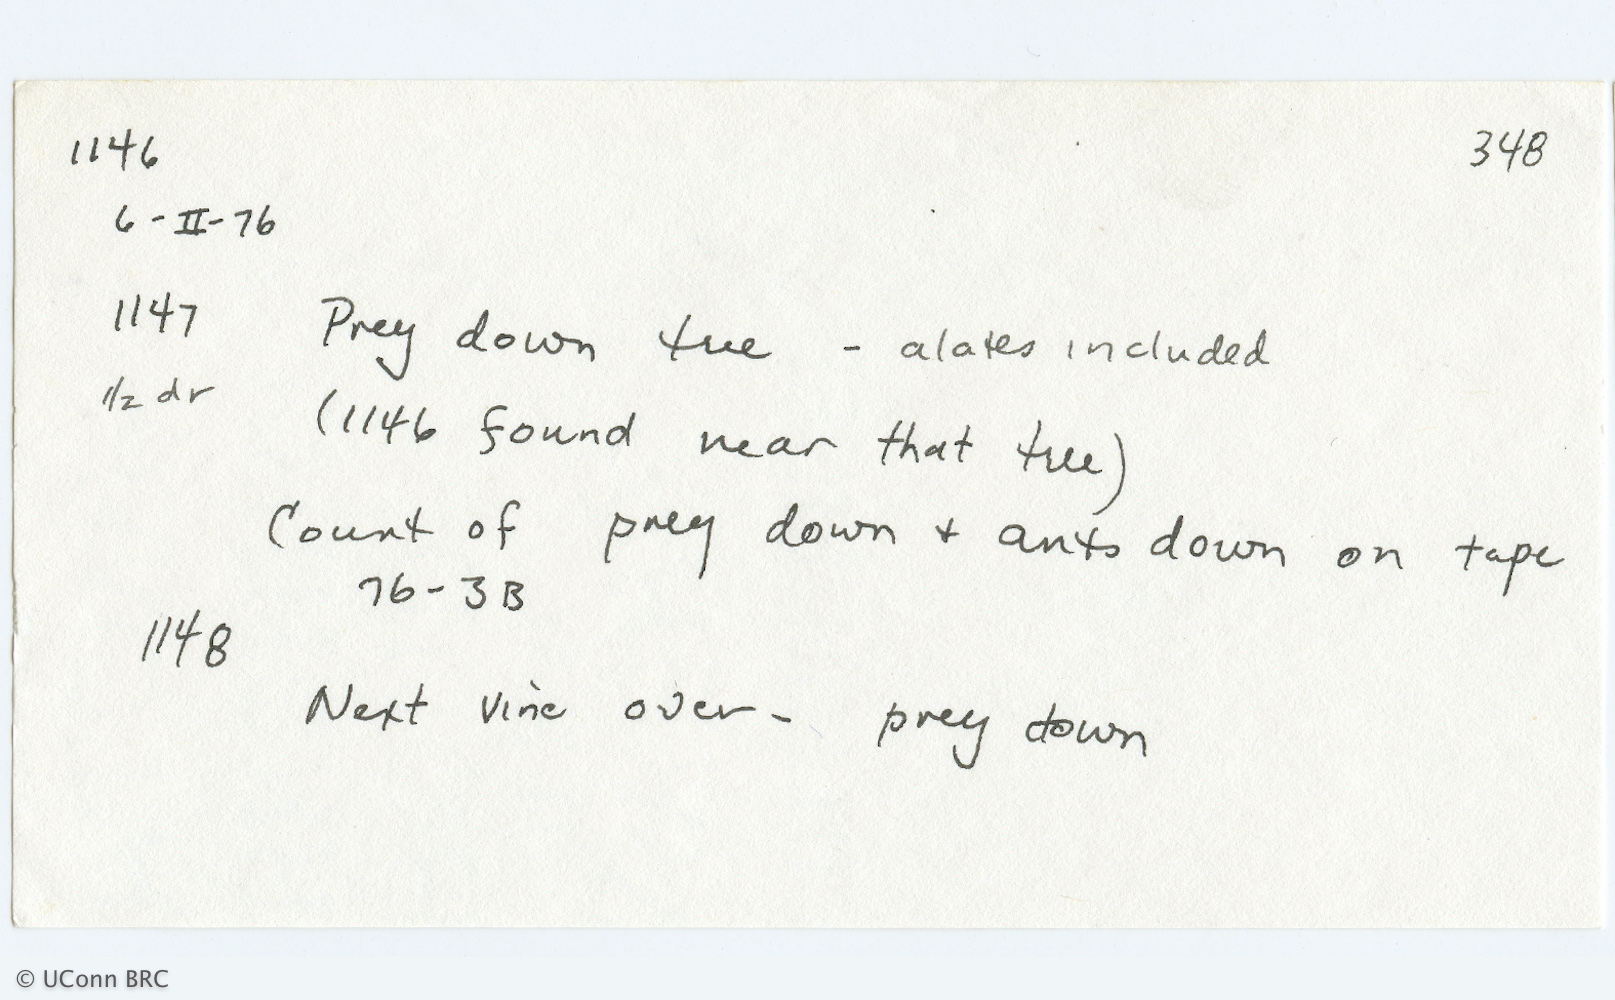 1146 348
6-II-76
1147 Prey down tree - alates included
1/2 dr (1146 found near that tree)
Count of prey down + ants down on tape
76-3B
1148
Next vine over- prey down
© UConn BRC